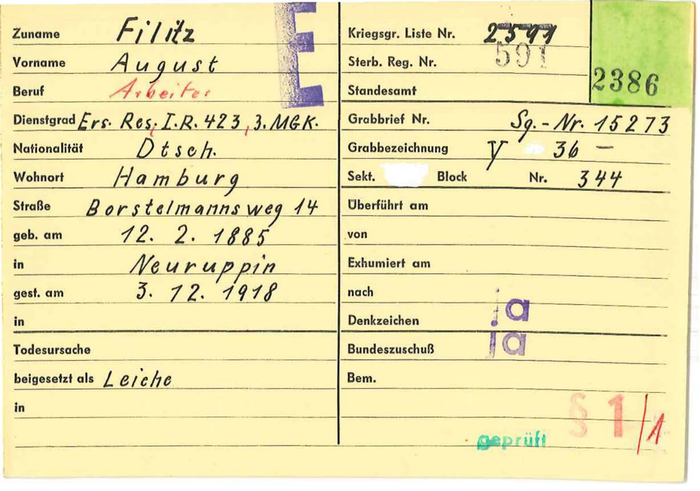 Zuname Filitz
Vorname August
Beruf Arbeiter
Dienstgrad Ers. Res. I.R. 423, 3. MGK.
Nationalität Dtsch.
Wohnort Hamburg
Straße Borstelmannsweg 14
geb. am 12. 2. 1885
in Neuruppin
gest. am 3. 12. 1918
in
Todesursache
beigesetzt als Leiche
in
E
Kriegsgr. Liste Nr.
Sterb. Reg. Nr. 591
Standesamt
2386
Grabbrief Nr. Sg.-Nr. 15273
Grabbezeichnung V 36 —
Sekt. Block Nr. 344
Überführt am
von
Exhumiert am
nach
Denkzeichen ja
Bundeszuschuß ja
Bem.
§ 1/1
geprüft